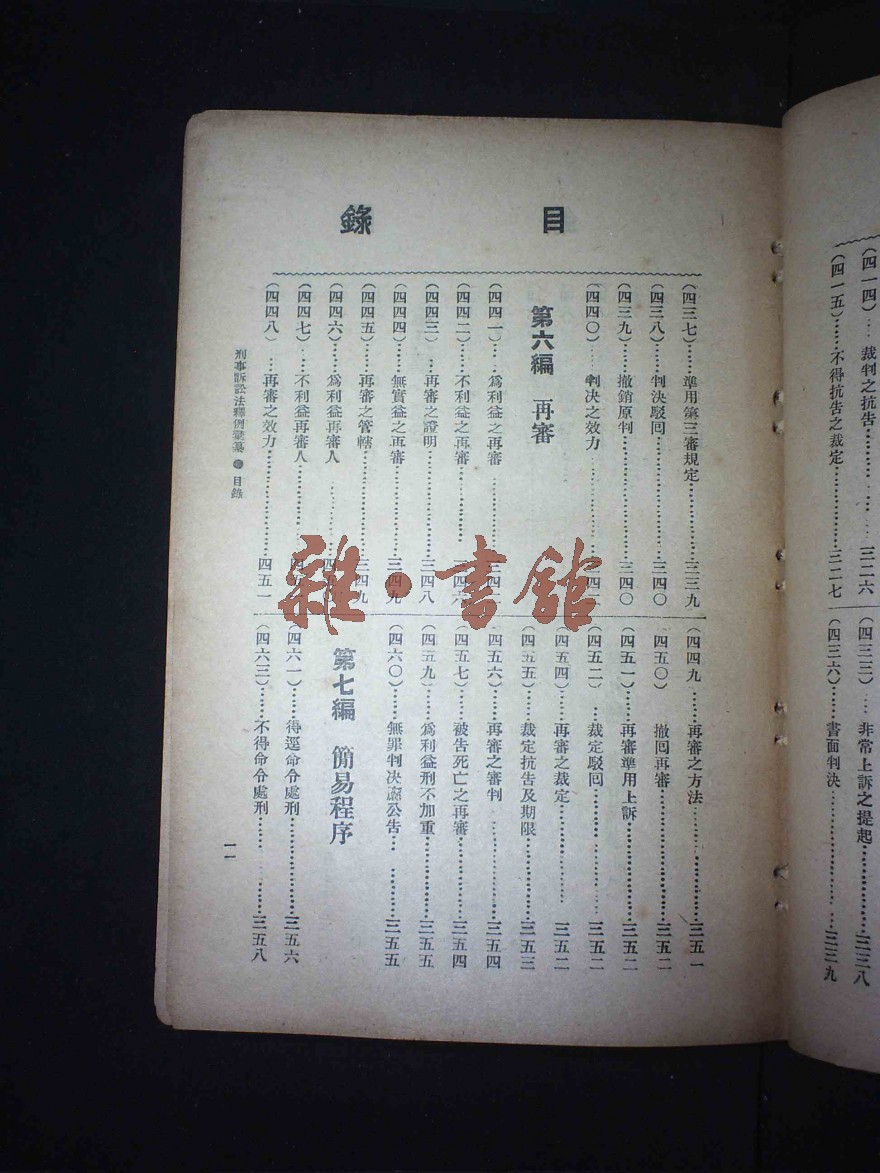 (四一四)…裁判之抗告……三二六
(四一五)……不得抗告之裁定……三二七
(四三三)…非常上訴之提起……三三八
(四三六)……書面判決……三三九
目錄
(四三七)……準用第三審規定……三三九
(四三八)……判決駁回……三四〇
(四三九)……撤銷原判……三四〇
(四四〇)…判决之效力……
第六編 再審
(四四一)……爲利益之再審……
(四四二)……不利益之再審……
(四四三)…再審之證明……三四八
(四四四)……無實益之再審……三四九
(四四五)……再審之管轄……三四九
(四四六)……爲利益再審人……
(四四七)…不利益再審人……
(四四八)…再審之效力……四五一
(四四九…再審之方法……三五一
(四五〇)撤回再審……三五二
(四五一)……再審準用上訴……三五二
(四五二)…裁定駁回……三五二
(四五四)……再審之裁定……三五二
(四五五)……裁定抗告及期限……三五三
(四五六)……再審之審判……三五四
(四五七)……被告死亡之再審……三五四
(四五九)……爲利益刑不加重……三五五
(四六〇)……無罪判决應公告……三五五
第七編 簡易程序
(四六一)……得逕命令處刑……三五六
(四六三)……不得命令處刑……三五八
刑事訴訟法釋例彙纂 目錄
一一
雜·書館